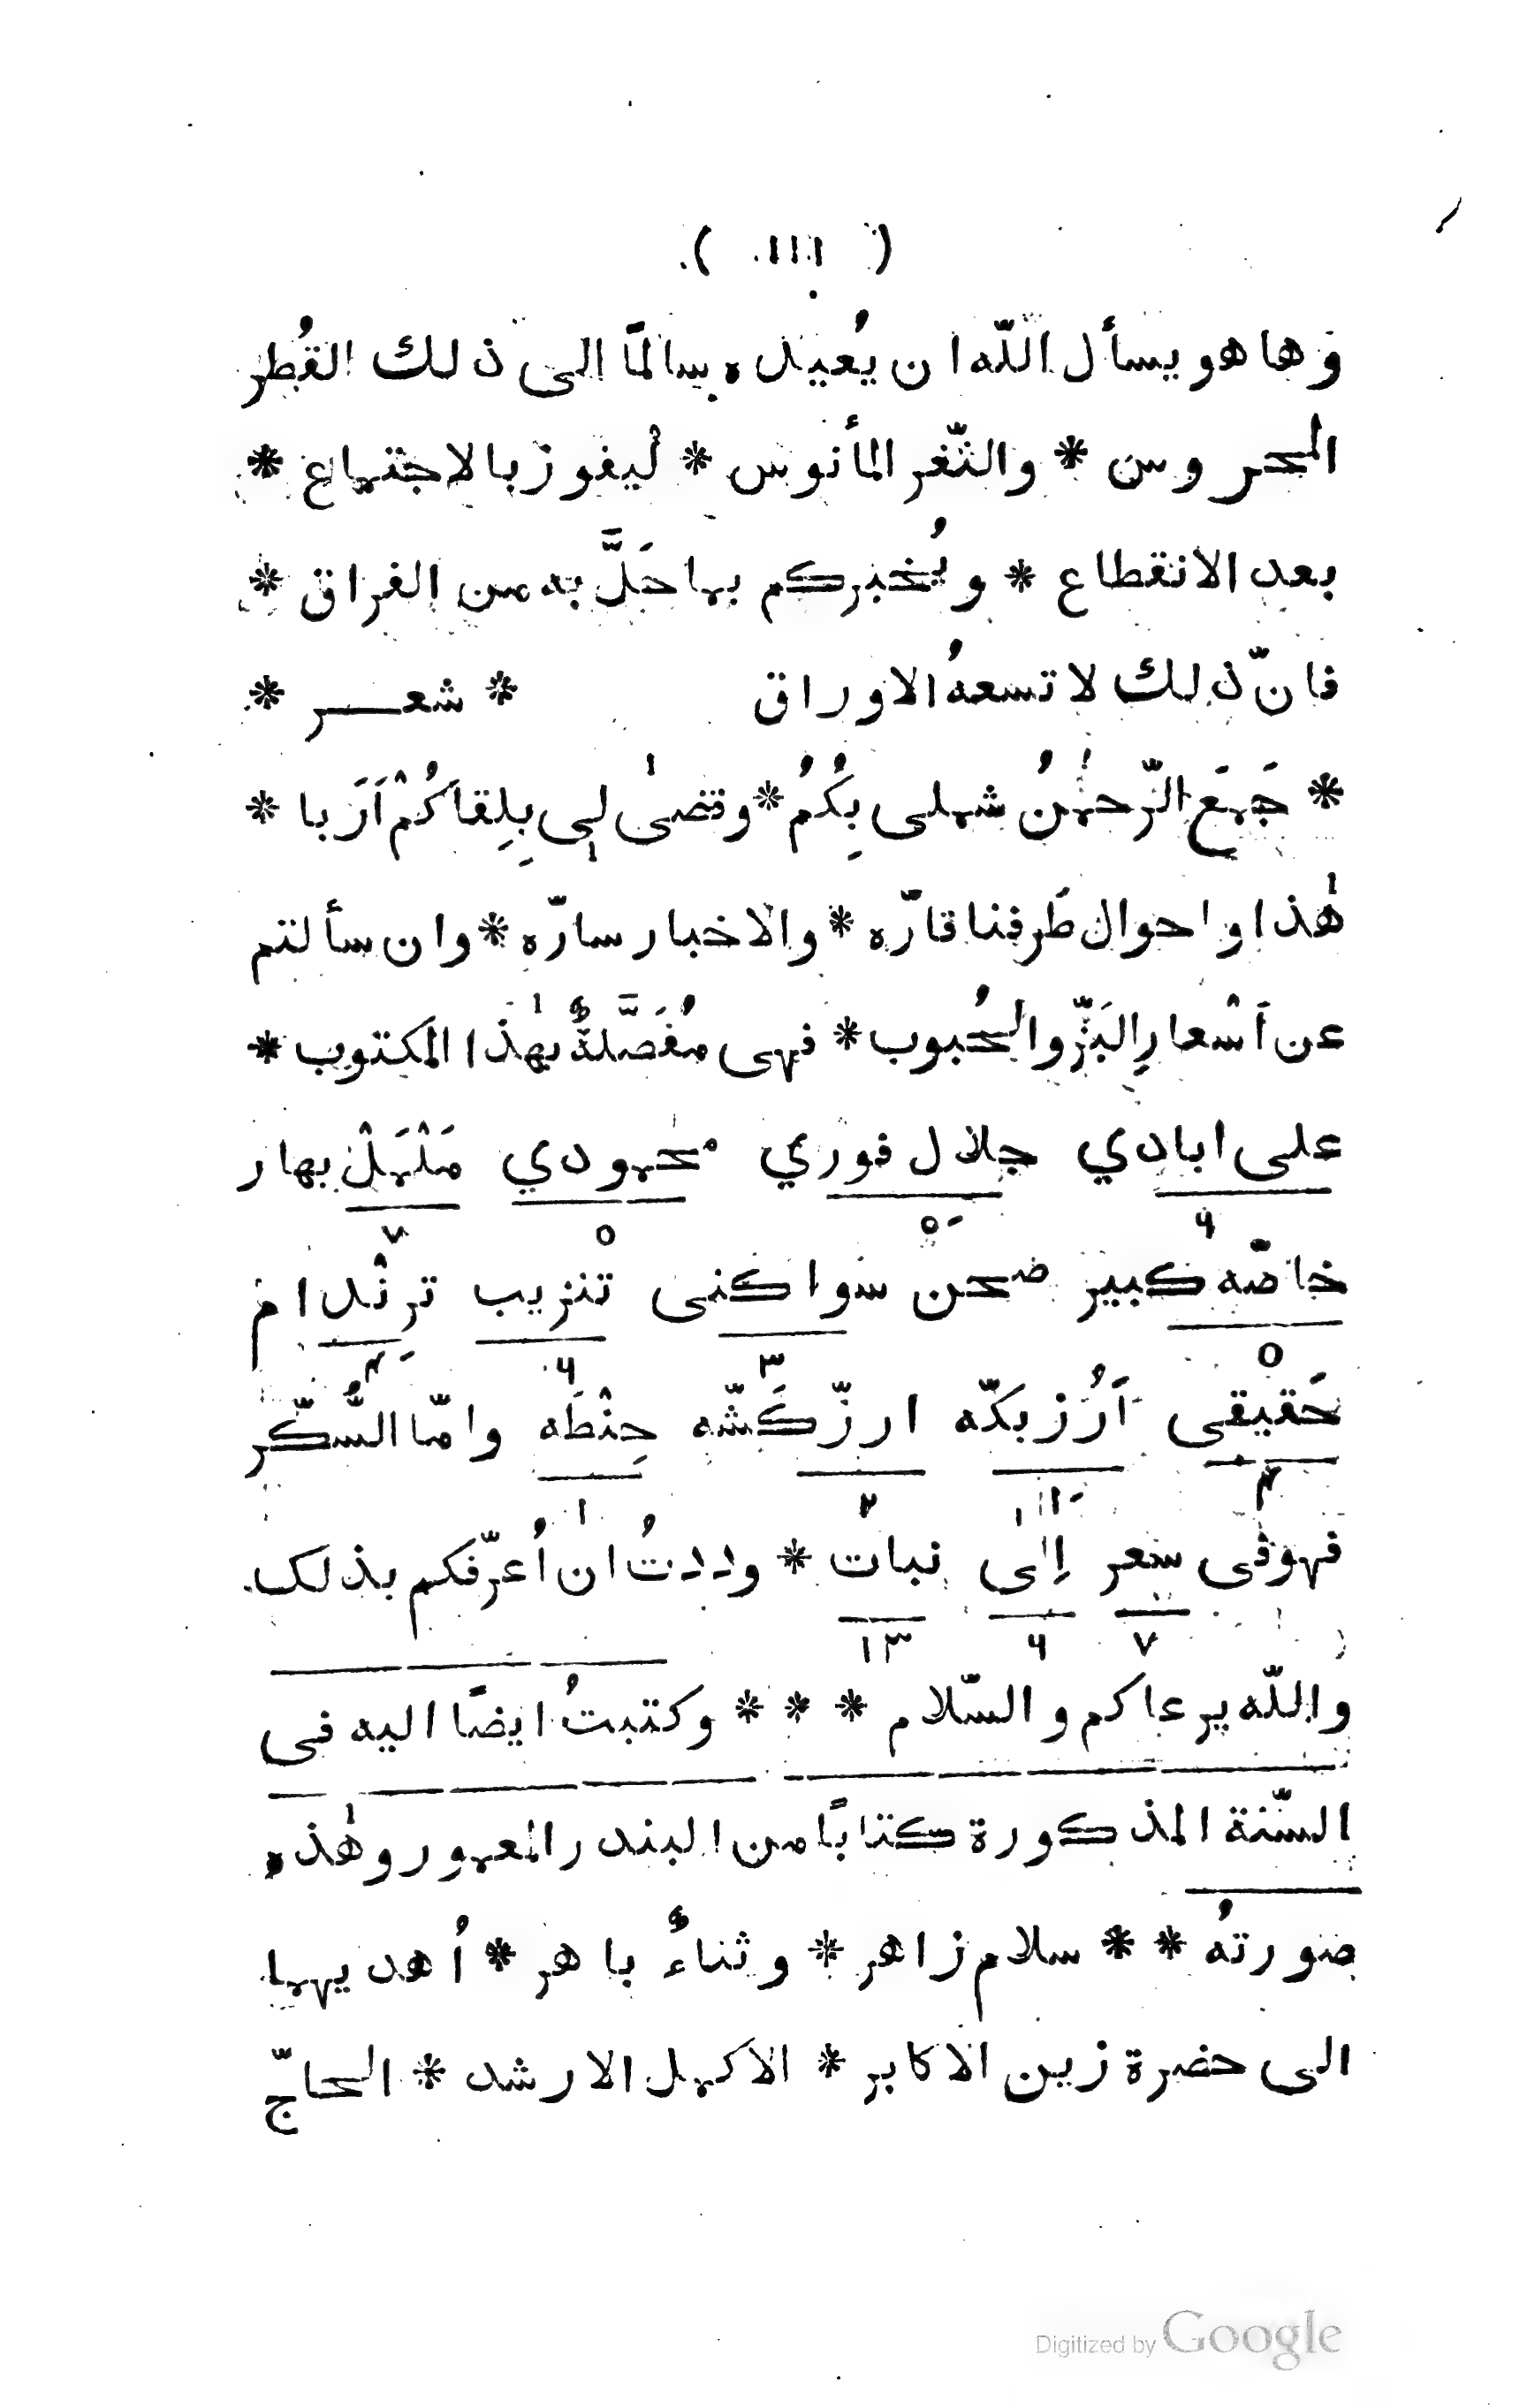 ( ١١١ )
وها هو يسأل اللّه ان يُعيده سالمًا الى ذلك القُطر
المحروس * والثّغر المأنوس * ليفوز بالاجتماع *
بعد الانقطاع * ويُخبركم بما حَلَّ به من الفراق *
فانّ ذلك لا تسعهُ الاوراق * شعر *
* جَمَعَ الرّحمٰنُ شملى بِكُمُ * وقضىٰ لى بِلِقاكُمْ اَرَبا *
هٰذا واحوال طَرفنا قارّه * والاخبار سارّه * وان سألتم
عن اَسْعارِ البَزِّ والحُبوب * فهى مُفَصَّلةٌ بهٰذا المكتوب *
على ابادي جلال فوري محمودي مَلْمَلْ بهار
٦ ٥ ٥ ٧
خاصّه كبير صحن سواكنى تنزيب ترِنْدام
٥ ٣ ٦ ٤
حَقيقى اَرُز بكّه ارزّ كَشّه حِنْطَه وامّا السُّكّر
٤ ١ ٢ ١
فهو فى سعر اِلىٰ نبات * وددتُ ان اُعرّفكم بذلك
٧ ٦ ١٣
واللّه يرعاكم والسّلام * * * وكتبتُ ايضًا اليه فى
السّنة المذكورة كتابًا من البندر المعمور وهٰذه
صورتهُ * * سلام زاهر * وثناءٌ باهر * اُهديهما
الى حضرة زين الاكابر * الاكمل الارشد * الحاجّ
Digitized by Google